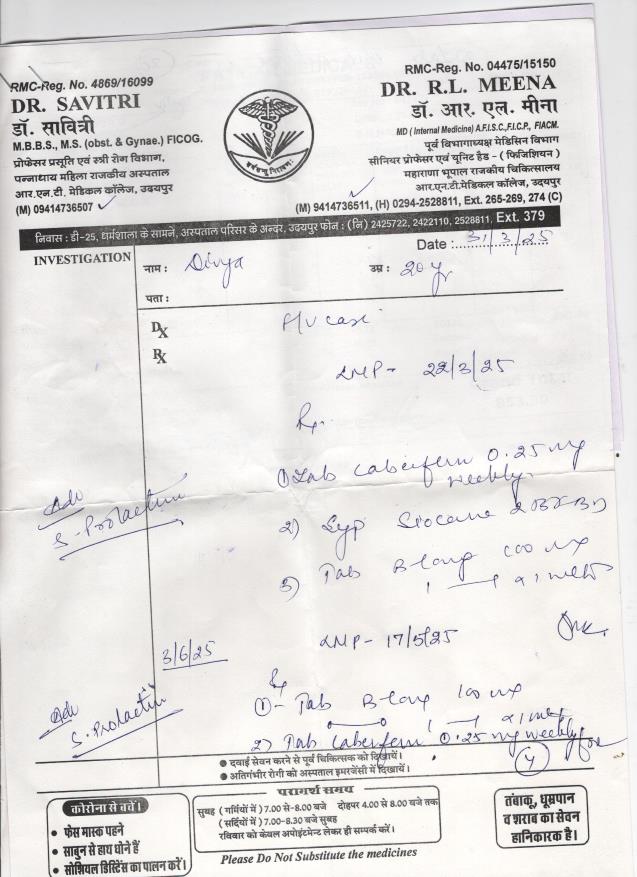 RMC-Reg. No. 4869/16099
DR. SAVITRI
डॉ. सावित्री
M.B.B.S., M.S. (obst. & Gynae.) FICOG.
प्रोफेसर प्रसूति एवं स्त्री रोग विभाग,
पन्नाधाय महिला राजकीय अस्पताल
आर.एन.टी. मेडिकल कॉलेज, उदयपुर
(M) 09414736507
RMC-Reg. No. 04475/15150
DR. R.L. MEENA
डॉ. आर. एल. मीना
MD ( Internal Medicine) A.F.I.S.C.,F.I.C.P., FIACM.
पूर्व विभागाध्यक्ष मेडिसिन विभाग
सीनियर प्रोफेसर एवं यूनिट हैड - ( फिजिशियन )
महाराणा भूपाल राजकीय चिकित्सालय
आर.एन.टी.मेडिकल कॉलेज, उदयपुर
(M) 9414736511, (H) 0294-2528811, Ext. 265-269, 274 (C)
निवास : डी-25, धर्मशाला के सामने, अस्पताल परिसर के अन्दर, उदयपुर फोन : (नि) 2425722, 2422110, 2528811, Ext. 379
INVESTIGATION
Date : 31/3/25
नाम : Divya उम्र : 20 yr
पता :
DX F/U case
RX
LMP - 22/3/25
Rx
1) Tab Caberfem 0.25 mg weekly
Adv
S. Prolactin
2) Syp
3) Tab B-long 100 mg
1 x 1 month
3/6/25 LMP - 17/5/25
Adv
S. Prolactin
1) - Tab B-long 100 mg
1 x 1 month
2) Tab Caberfem 0.25 mg weekly for
4
● दवाई सेवन करने से पूर्व चिकित्सक को दिखायें।
● अतिगंभीर रोगी को अस्पताल इमरजेंसी में दिखायें।
कोरोना से बचें।
• फेस मास्क पहने
• साबुन से हाथ धोने हैं
• सोशियल डिस्टिेंस का पालन करें।
परामर्श समय
सुबह ( गर्मियों में ) 7.00 से-8.00 बजे दोहपर 4.00 से 8.00 बजे तक
( सर्दियों में ) 7.00-8.30 बजे सुबह
रविवार को केवल अपोइंटमेन्ट लेकर ही सम्पर्क करें।
Please Do Not Substitute the medicines
तंबाकू, धूम्रपान
व शराब का सेवन
हानिकारक है।